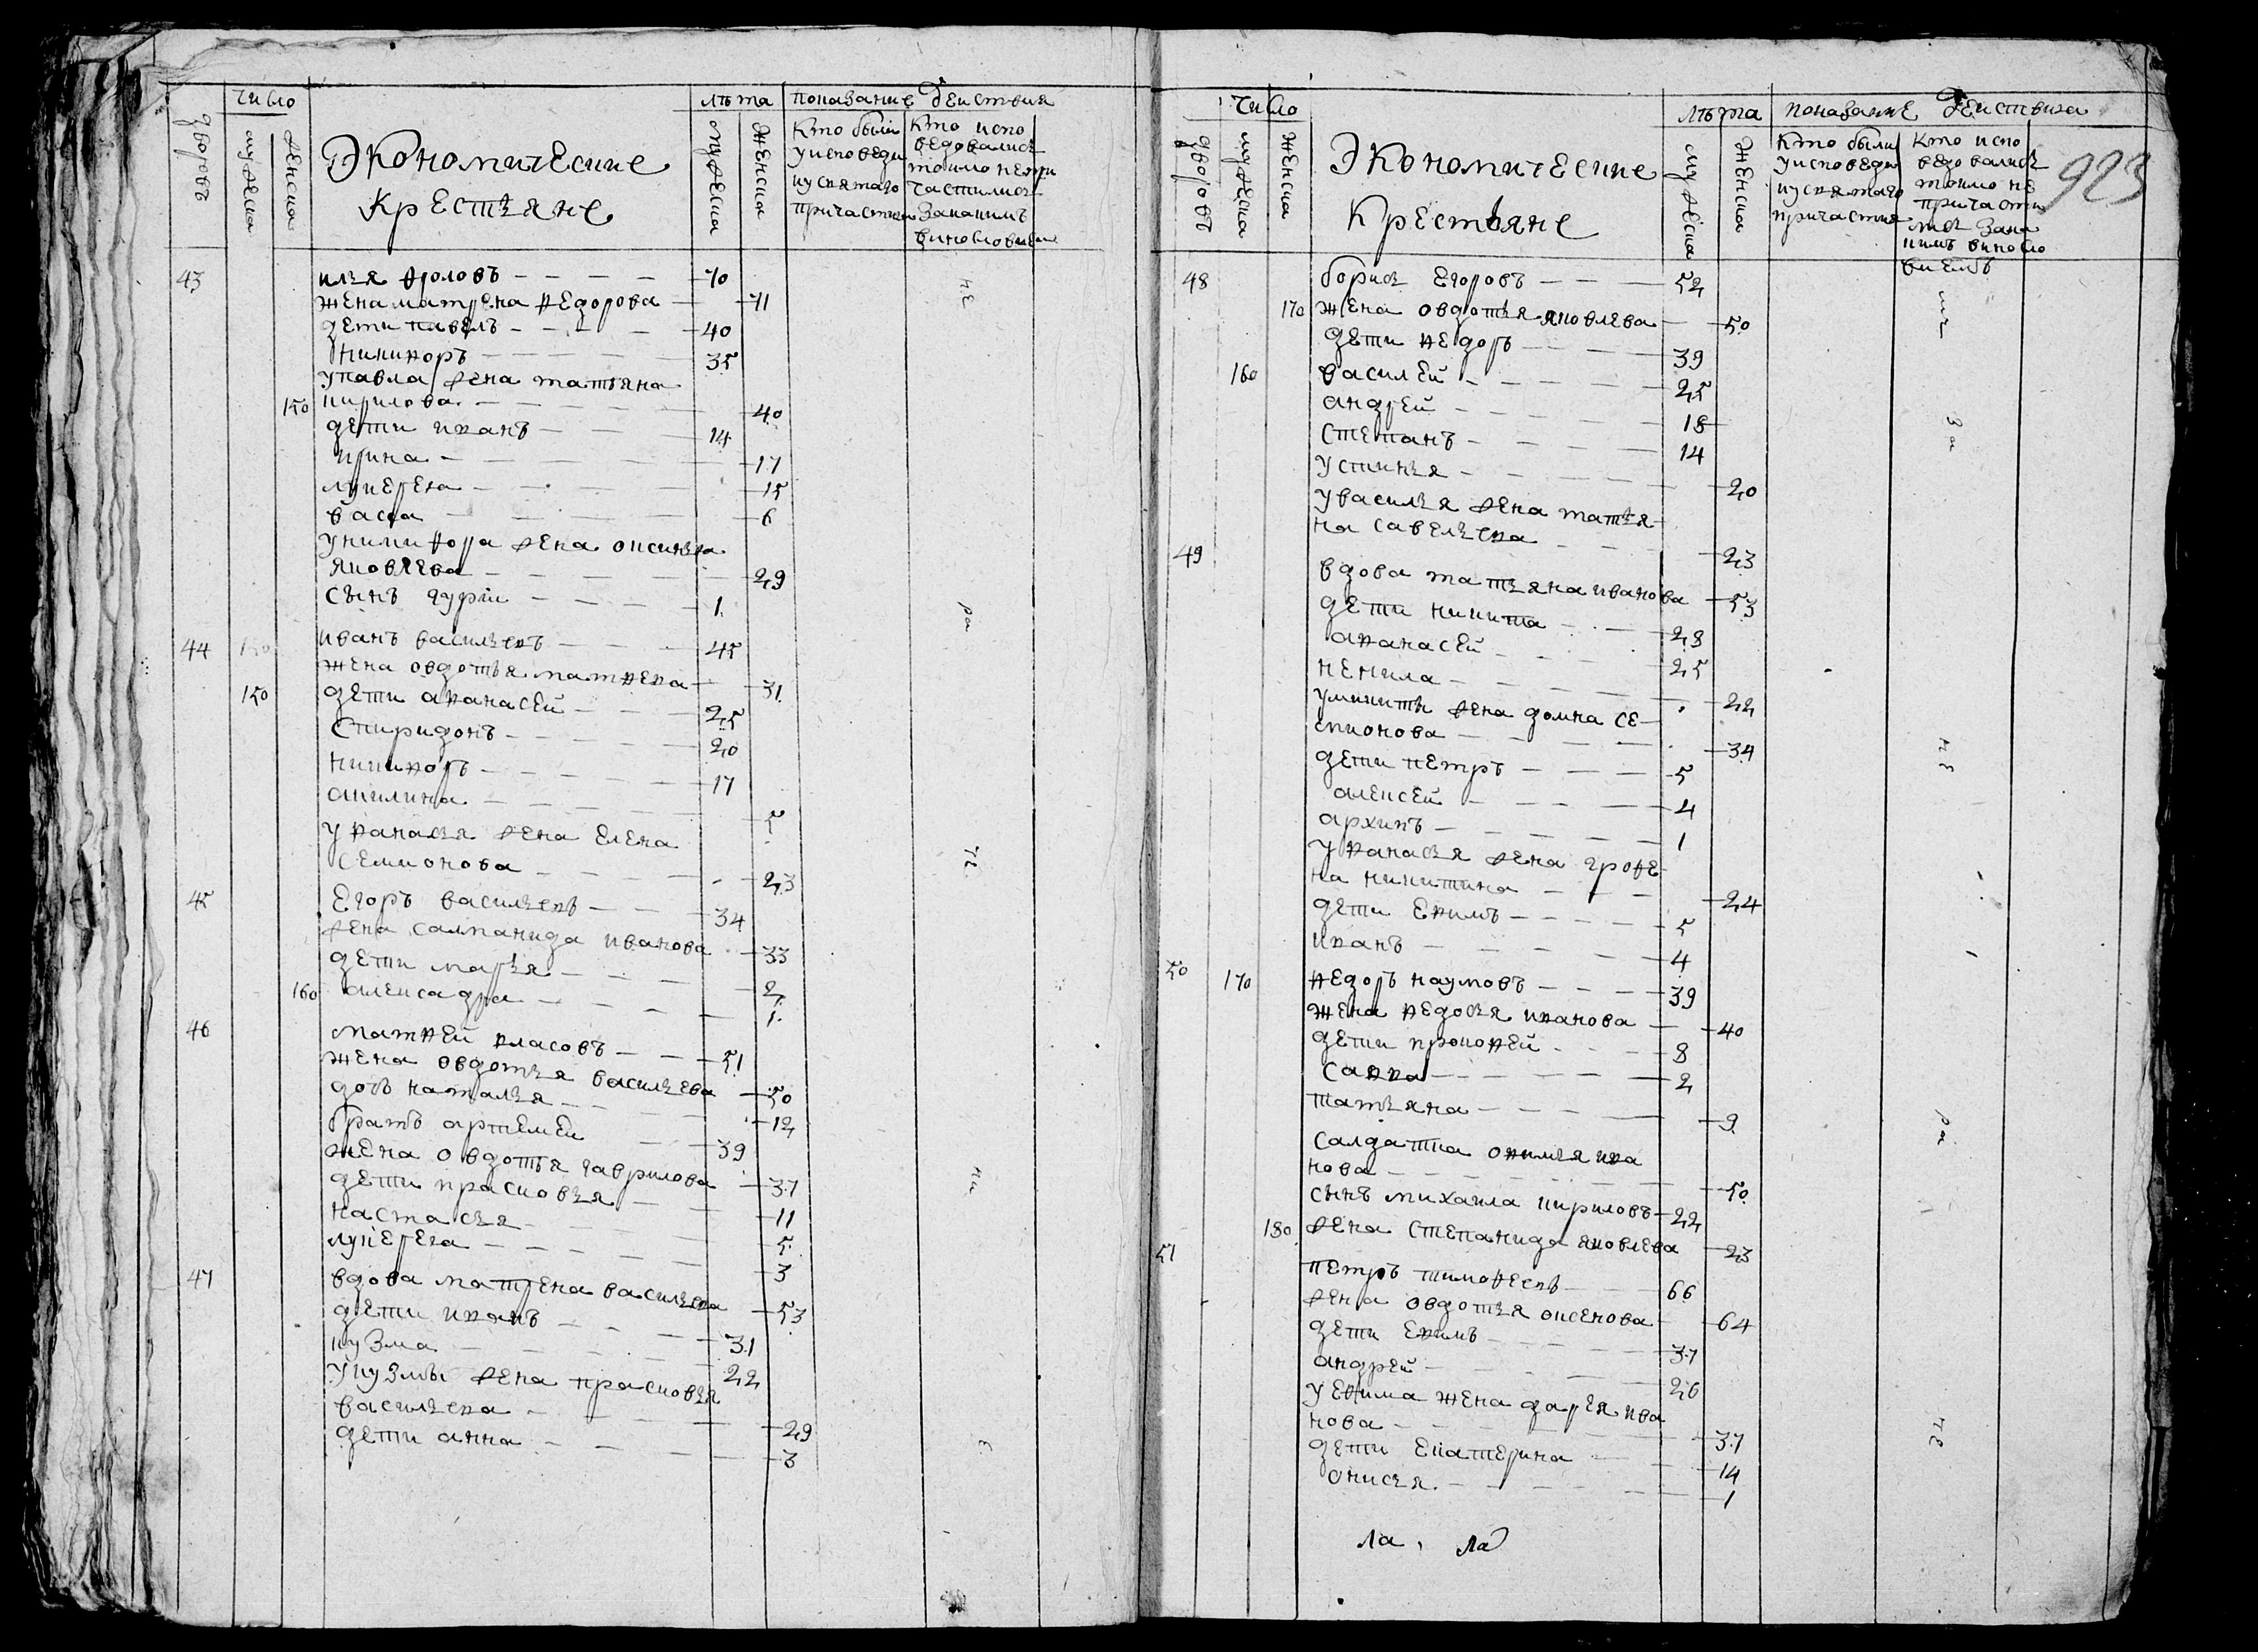 число
лѣта показание действия
дворовъ
мужеска
женска
Экономические
крестьяне
мужеска
женска
Кто были
у исповеди
и у святаго
причастия
Кто испо
ведовались
токмо не при
частились
за каким
винословием
43 илья фроловъ — 70
жена матрена федорова — 71
дети павелъ — 40
никифоръ — 35
у павла жена татьяна
150 кирилова — 40
дети иванъ — 14
ирина — 17
лукеря — 15
васса — 6
у никифора жена оксинья
яковлева — 29
сынъ гурии — 1
44 иванъ васильевъ — 45
жена овдотья матфева — 31
150 дети афанасей — 25
спиридонъ — 20
никифоръ — 17
акилина — 5
у фанасья жена елена
семионова — 23
45 егоръ васильевъ — 34
жена саламанида иванова — 33
дети марья — 2
160 алексадра — 1
46 матфей власовъ — 51
жена овдотья васильева — 50
дочь наталья — 12
братъ артемей — 39
жена овдотья гаврилова — 37
дети прасковья — 11
настасья — 5
лукеря — 3
47 вдова матрена васильева — 53
дети иванъ — 31
кузма — 22
у кузмы жена прасковья
васильева — 29
дети анна — 3
число
лѣта показание действия
дворовъ
мужеска
женска
Экономические
Крестьяне
мужеска
женска
Кто были
у исповеди
и у святаго
причастия
Кто испо
ведовались
токмо не
причасти
лись за ка
кимъ виносло
виемъ
923
48 борисъ егоровъ — 52
170 жена овдотья яковлева — 50
дети федоръ — 39
160 василей — 25
андрей — 18
степанъ — 14
устинья — 20
у василья жена татья
на савельева — 23
49 вдова татьяна иванова — 53
дети никита — 28
афанасей — 25
ненила — 22
у никиты жена домна се
мионова — 34
дети петръ — 5
алексей — 4
архипъ — 1
у фанасья жена грофе
на никитина — 24
дети ефимъ — 5
иванъ — 4
50 170 федоръ наумовъ — 39
жена федосья иванова — 40
дети прокофей — 8
савва — 2
татьяна — 9
салдатка офимья ива
нова — 50
сынъ михаила кириловъ — 22
180 жена степанида яковлева — 23
51 петръ тимофеевъ — 66
жена овдотья оксенова — 64
дети ефимъ — 37
андрей — 26
у ефима жена дарья ива
нова — 37
дети екатерина — 14
онисья — 1